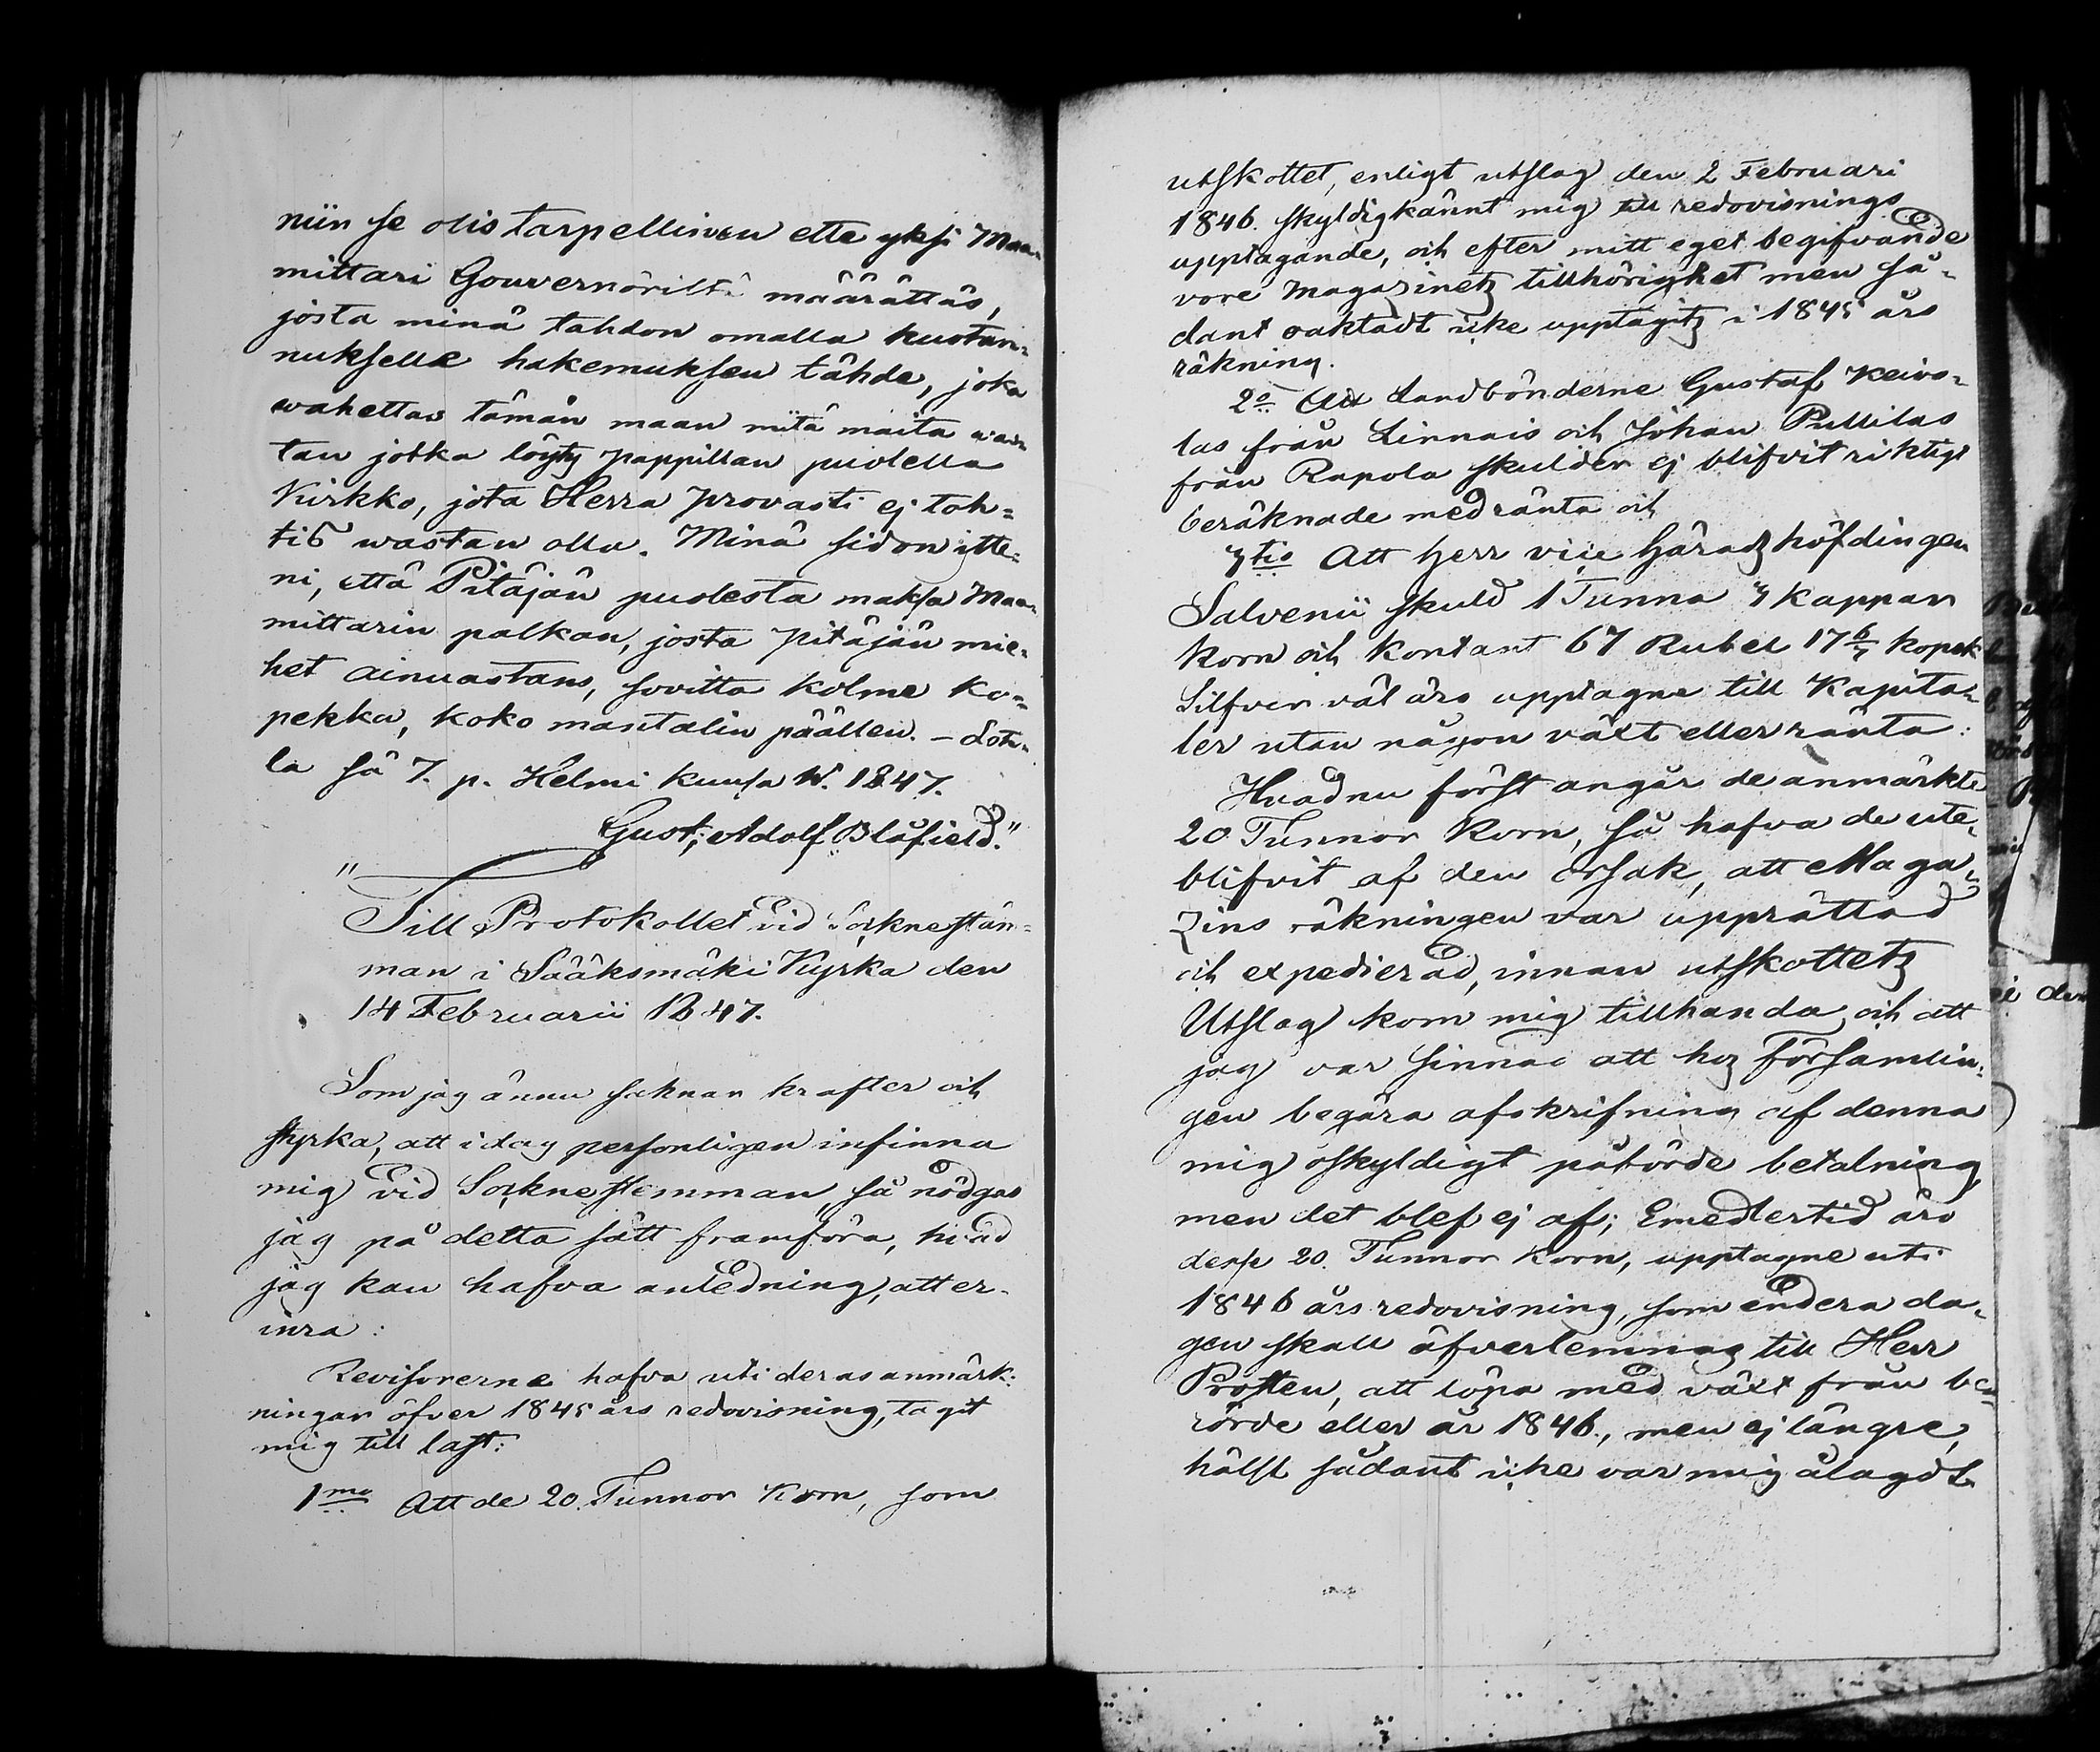 niin se olis tarpellinen ette yksi Maa-
mittari Gouvernöriltä määrättäs,
josta minä tahdon omalla kustan-
nuksella hakemuksen tähde, joka
wahettas tämän maan mitä maita
tan jotka löyty pappillan puolella
Kirkko, jota Herra provasti ej toh-
tis wastan olla. Minä sidon itte-
ni, että Pitäjän puolesta maksa Maa-
mittarin palkan, josta pitäjän mie-
het ainuastans, sovitta kolme ko-
pekka, koko mantalin päällen. – Lotu-
la sä 7. p. Helmi kuusa W. 1847.
Gust: Adolf Blåfield."
"Till Protokollet vid Sockne stän-
man i Sääksmäki Kyrka den
14 Februarii 1847.
Som jag ännu saknar krafter och
styrka, att i dag personligen infinna
mig vid Sockne stemman, så nödgas
jag på detta sätt framföra, hvad
jag kan hafva anledning, att er-
inra:
Revisorerne hafva uti deras anmärk-
ningar öfver 1845 års redovisning, tagit
mig till last:
1mo Att de 20. Tunnor Korn, som
utskottet, enligt utslag den 2 Februari
1846. skyldigkännt mig till redovisnings
upptagande, och efter mitt eget begifvande
vore Magazinetz tillhörighet men så-
dant oaktadt icke upptagitz i 1845 års
räkning.
2o Att Landbönderne Gustaf Keivo-
las från Linnais och Johan Pullilas
från Rapola skulder ej blifvit riktigt
beräknade med ränta och
3tio Att Herr vice Häradzhöfdingen
Salvenii skuld 1 Tunna 3 kappar
Korn och kontant 67 Rubel 17 6/7 kopek
Silfver väl äro upptagne till Kapita-
ler utan någon växt eller ränta:
Hvad nu först angår de anmärkte
20 Tunnor Korn, så hafva de ute-
blifvit af den orsak, att Maga-
zins räkningen var upprättad
och expedierad, innan utskottetz
Utslag kom mig tillhanda och att
jag var sinnad att hoz Församlin-
gen begära afskrifning af denna
mig oskyldigt påbörde betalning
men det blef ej af; Emedlertid äro
dessa 20. Tunnor Korn, upptagne uti
1846 års redovisning, som endera da-
gen skall öfverlemnas till Herr
Prosten, att löpa med växt från be-
rörde eller år 1846., men ej längre,
hälst sådant icke var mig ålagdt